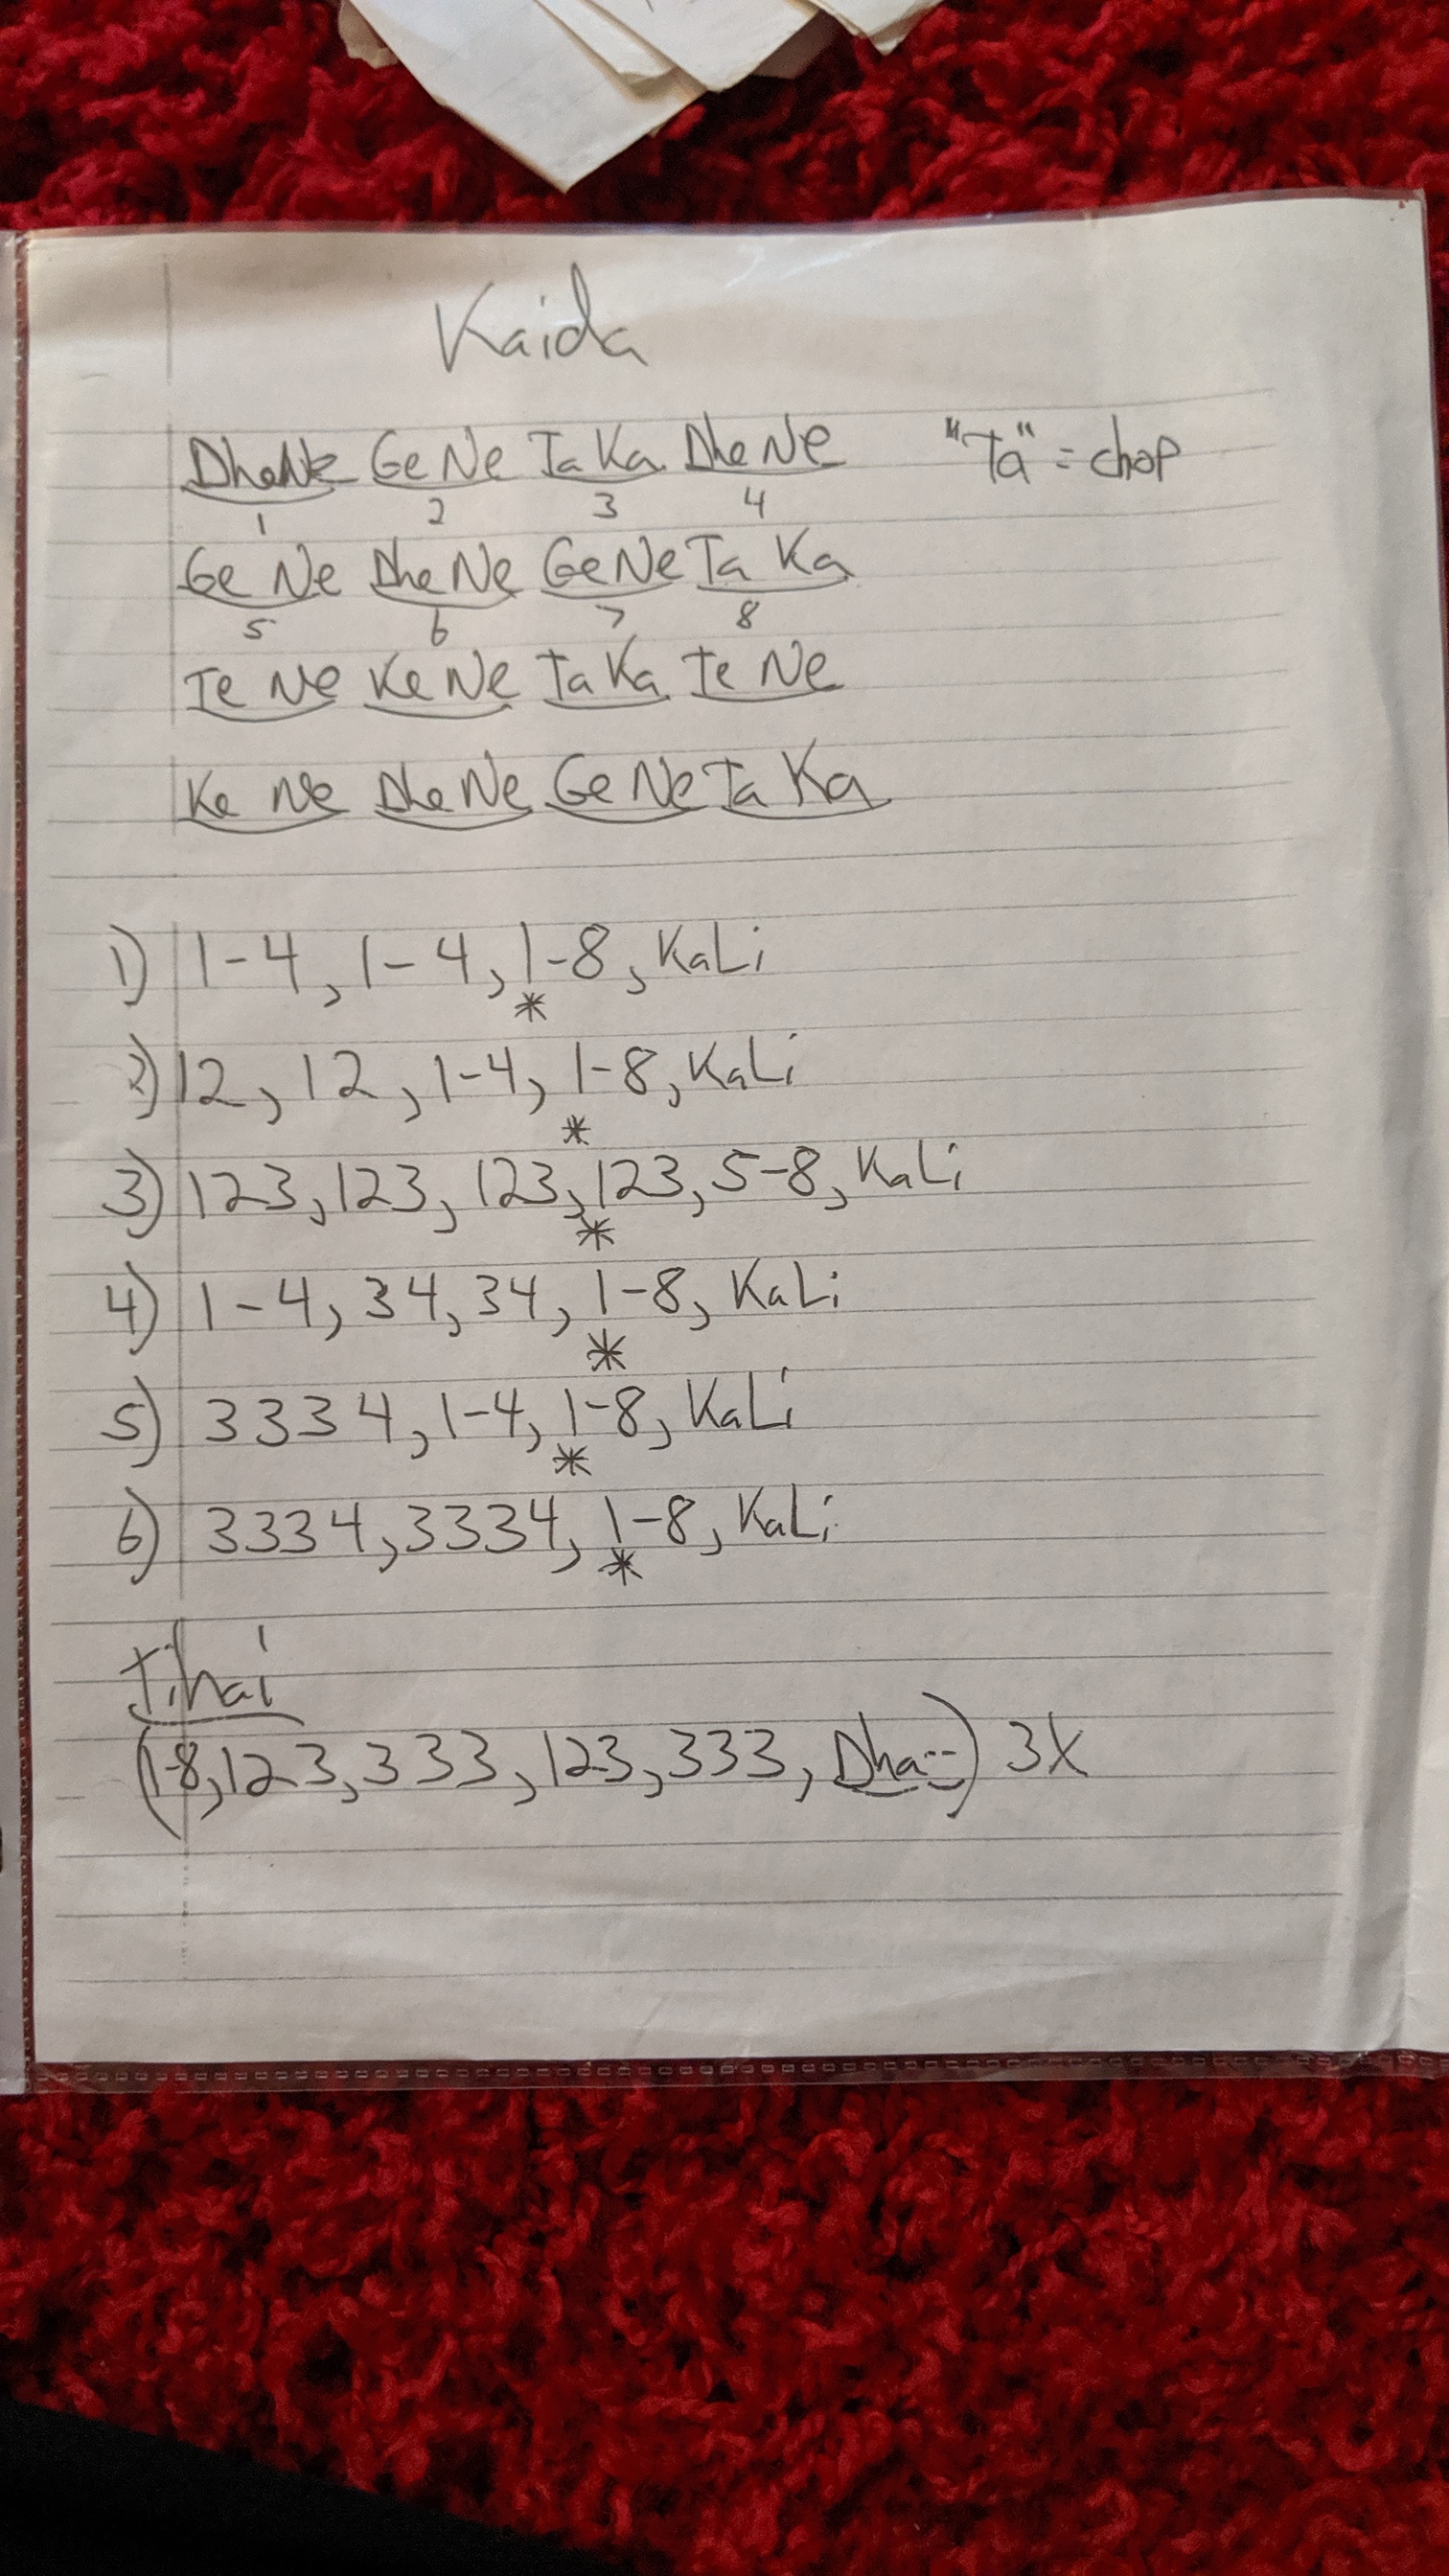 Kaida
DheNe GeNe TaKa DheNe "Ta" = chop
1 2 3 4
Ge Ne DheNe GeNe Ta Ka
5 6 7 8
Te Ne KeNe TaKa Te Ne
Ke Ne DheNe GeNe Ta Ka
1) 1-4, 1-4, 1-8, KaLi
*
2) 12, 12, 1-4, 1-8, KaLi
*
3) 123, 123, 123, 123, 5-8, KaLi
*
4) 1-4, 34, 34, 1-8, KaLi
*
5) 3334, 1-4, 1-8, KaLi
*
6) 3334, 3334, 1-8, KaLi
*
Tihai
(1-8, 123, 333, 123, 333, Dha--) 3X